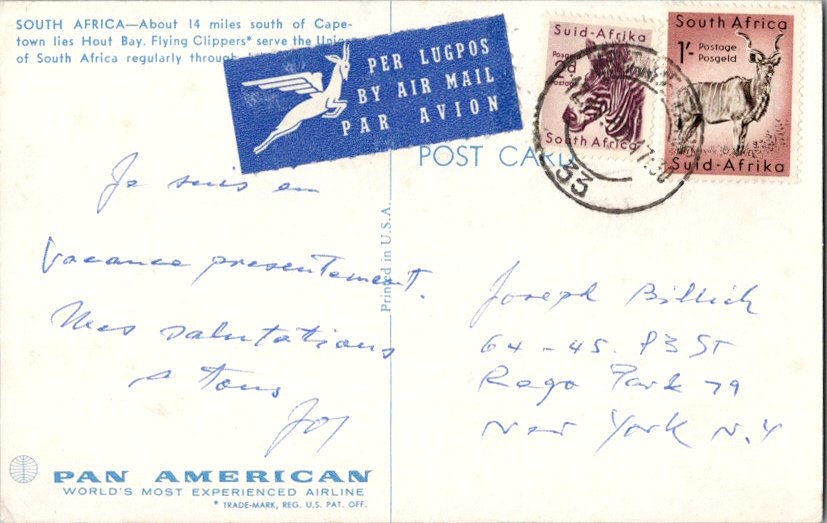 SOUTH AFRICA—About 14 miles south of Cape-
town lies Hout Bay. Flying Clippers* serve the Union
of South Africa regularly through
PER LUGPOS
BY AIR MAIL
PAR AVION
Suid-Afrika
2d
Posgeld
Postage
South Africa
South Africa
1/- Postage
Posgeld
Suid-Afrika
33
POST CARD
Je suis en
vacance presentement.
Mes salutations
a tous
Joy
Printed in U.S.A.
Joseph Billich
64-45. 83 ST
Rego Park 79
New York N.Y
PAN AMERICAN
WORLD'S MOST EXPERIENCED AIRLINE
* TRADE-MARK, REG. U.S. PAT. OFF.